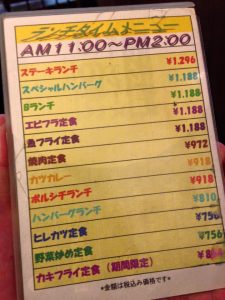 ランチタイムメニュー
AM11:00～PM2:00
ステーキランチ ¥1.296
スペシャルハンバーグ ¥1.188
Bランチ ¥1.188
エビフラ定食 ¥1.188
魚フライ定食 ¥1.188
焼肉定食 ¥972
カツカレー ¥918
ポルシチランチ ¥918
ハンバーグランチ ¥810
ヒレカツ定食 ¥756
野菜炒め定食 ¥756
カキフライ定食（期間限定）
*金額は税込み価格です*